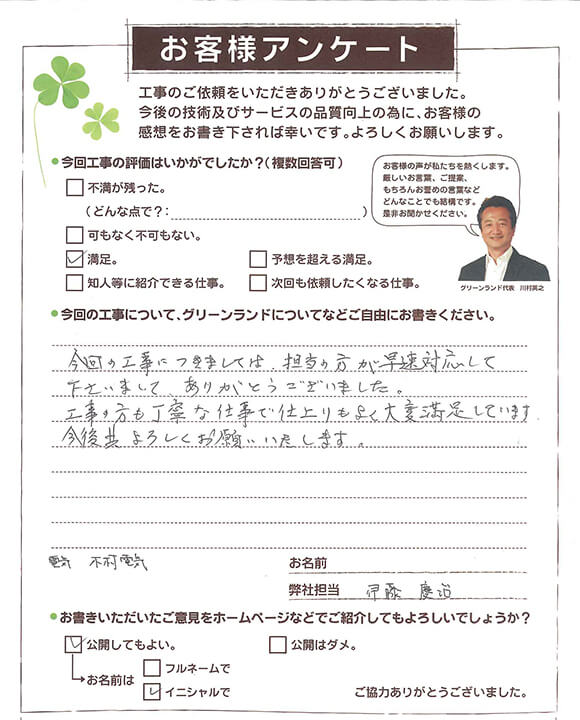 お客様アンケート
工事のご依頼をいただきありがとうございました。
今後の技術及びサービスの品質向上の為に、お客様の
感想をお書き下されば幸いです。よろしくお願いします。
今回工事の評価はいかがでしたか?(複数回答可)
不満が残った。
(どんな点で?: )
可もなく不可もない。
満足。
予想を超える満足。
知人等に紹介できる仕事。
次回も依頼したくなる仕事。
お客様の声が私たちを熱くします。
厳しいお言葉、ご提案、
もちろんお誉めの言葉など
どんなことでも結構です。
是非お聞かせください。
グリーンランド代表 川村英之
今回の工事について、グリーンランドについてなどご自由にお書きください。
今回の工事につきましては、担当の方が早速対応して
下さいまして ありがとうございました。
工事の方も丁寧な仕事で仕上りもよく大変満足しています。
今後共よろしくお願いいたします。
電気 木村電気
お名前
弊社担当 伊藤 慶治
お書きいただいたご意見をホームページなどでご紹介してもよろしいでしょうか?
公開してもよい。
公開はダメ。
お名前は
フルネームで
イニシャルで
ご協力ありがとうございました。